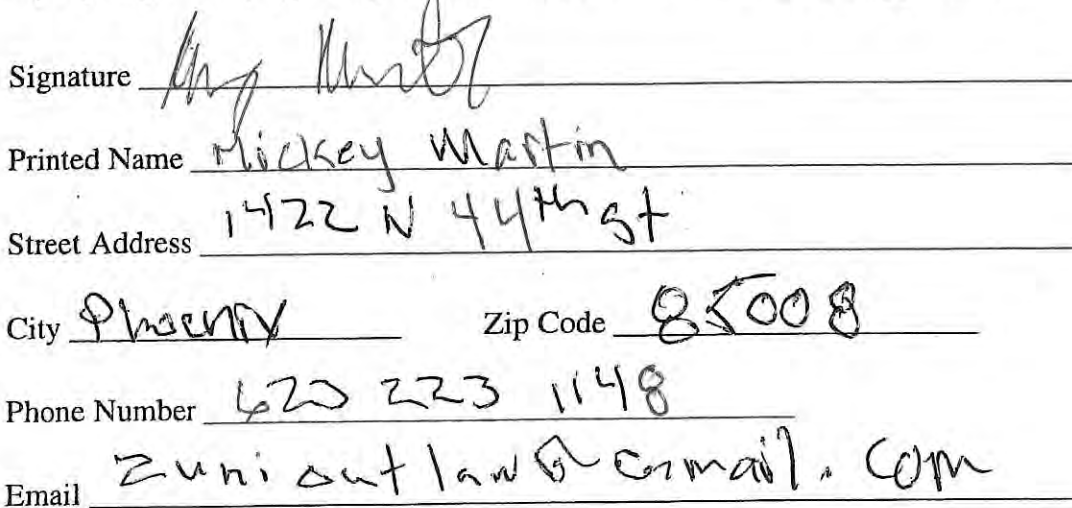 Signature
Printed Name Mickey Martin
Street Address 1422 N 44th st
City Phoenix Zip Code 85008
Phone Number 223 1148
Email Zunioutlaw@gmail.com